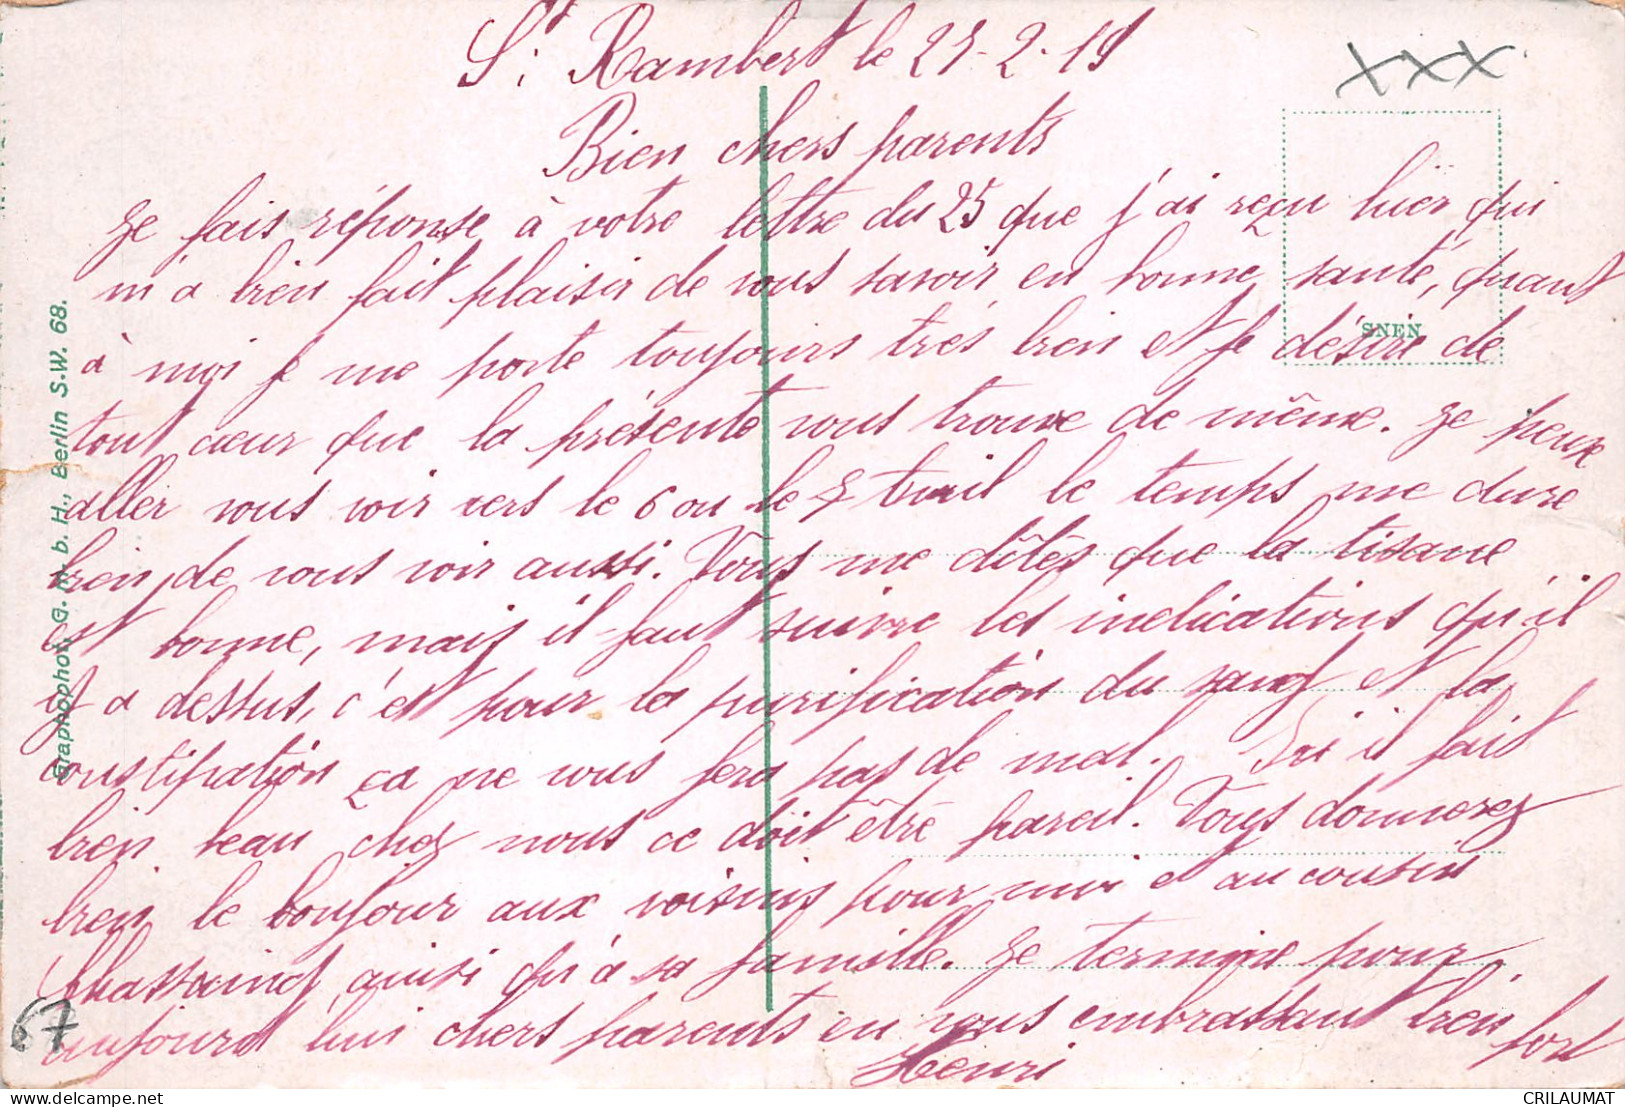 St Rambert le 27-2-19
Bien chers parents
Je fais réponse à votre lettre du 25 que j'ai reçu hier qui
m'a bien fait plaisir de vous savoir en bonne santé, quant
à moi je me porte toujours très bien et je désire de
tout cœur que la présente vous trouve de même. Je peux
aller vous voir vers le 6 ou le 7 Avril le temps me dure
bien de vous voir aussi. Vous me dites que la tisane
est bonne, mais il faut suivre les indications qu'il
y a dessus, c'est pour la purification du sang et la
constipation ça ne vous fera pas de mal. Ici il fait
bien beau chez nous ce doit être pareil. Vous donnerez
bien le bonjour aux voisins pour moi et au cousin
Chassaing ainsi qu'à sa famille. Je termine pour
aujourd hui chers parents en vous embrassant bien fort
Henri
XXX
SNEN
Graphophot, G. m. b. H., Berlin S.W. 68.
67
CRILAUMAT